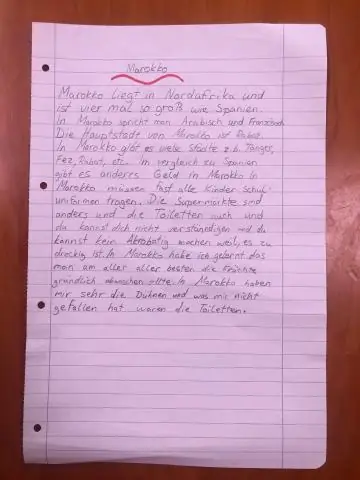 Marokko
Marokko liegt in Nordafrika und
ist vier mal so groß wie Spanien.
In Marokko spricht man Arabisch und Französisch
Die Hauptstadt von Marokko ist Rabat.
In Marokko gibt es viele Städte z.b. Tanger,
Fez, Rabat, etc. Im vergleich zu Spanien
gibt es anderes Geld in Marokko In
Marokko müssen fast alle Kinder Schul-
uniformen tragen. Die Supermärkte sind
anders und die Toiletten auch und
du kannst dich nicht verständigen und du
kannst kein Akrobatig machen weil, es zu
dreckig ist. In Marokko habe ich gelernt das
man am aller aller besten die Früchte
gründlich abwaschen In Marokko haben
mir sehr die Dühnen und was mir nicht
gefallen hat waren die Toiletten.